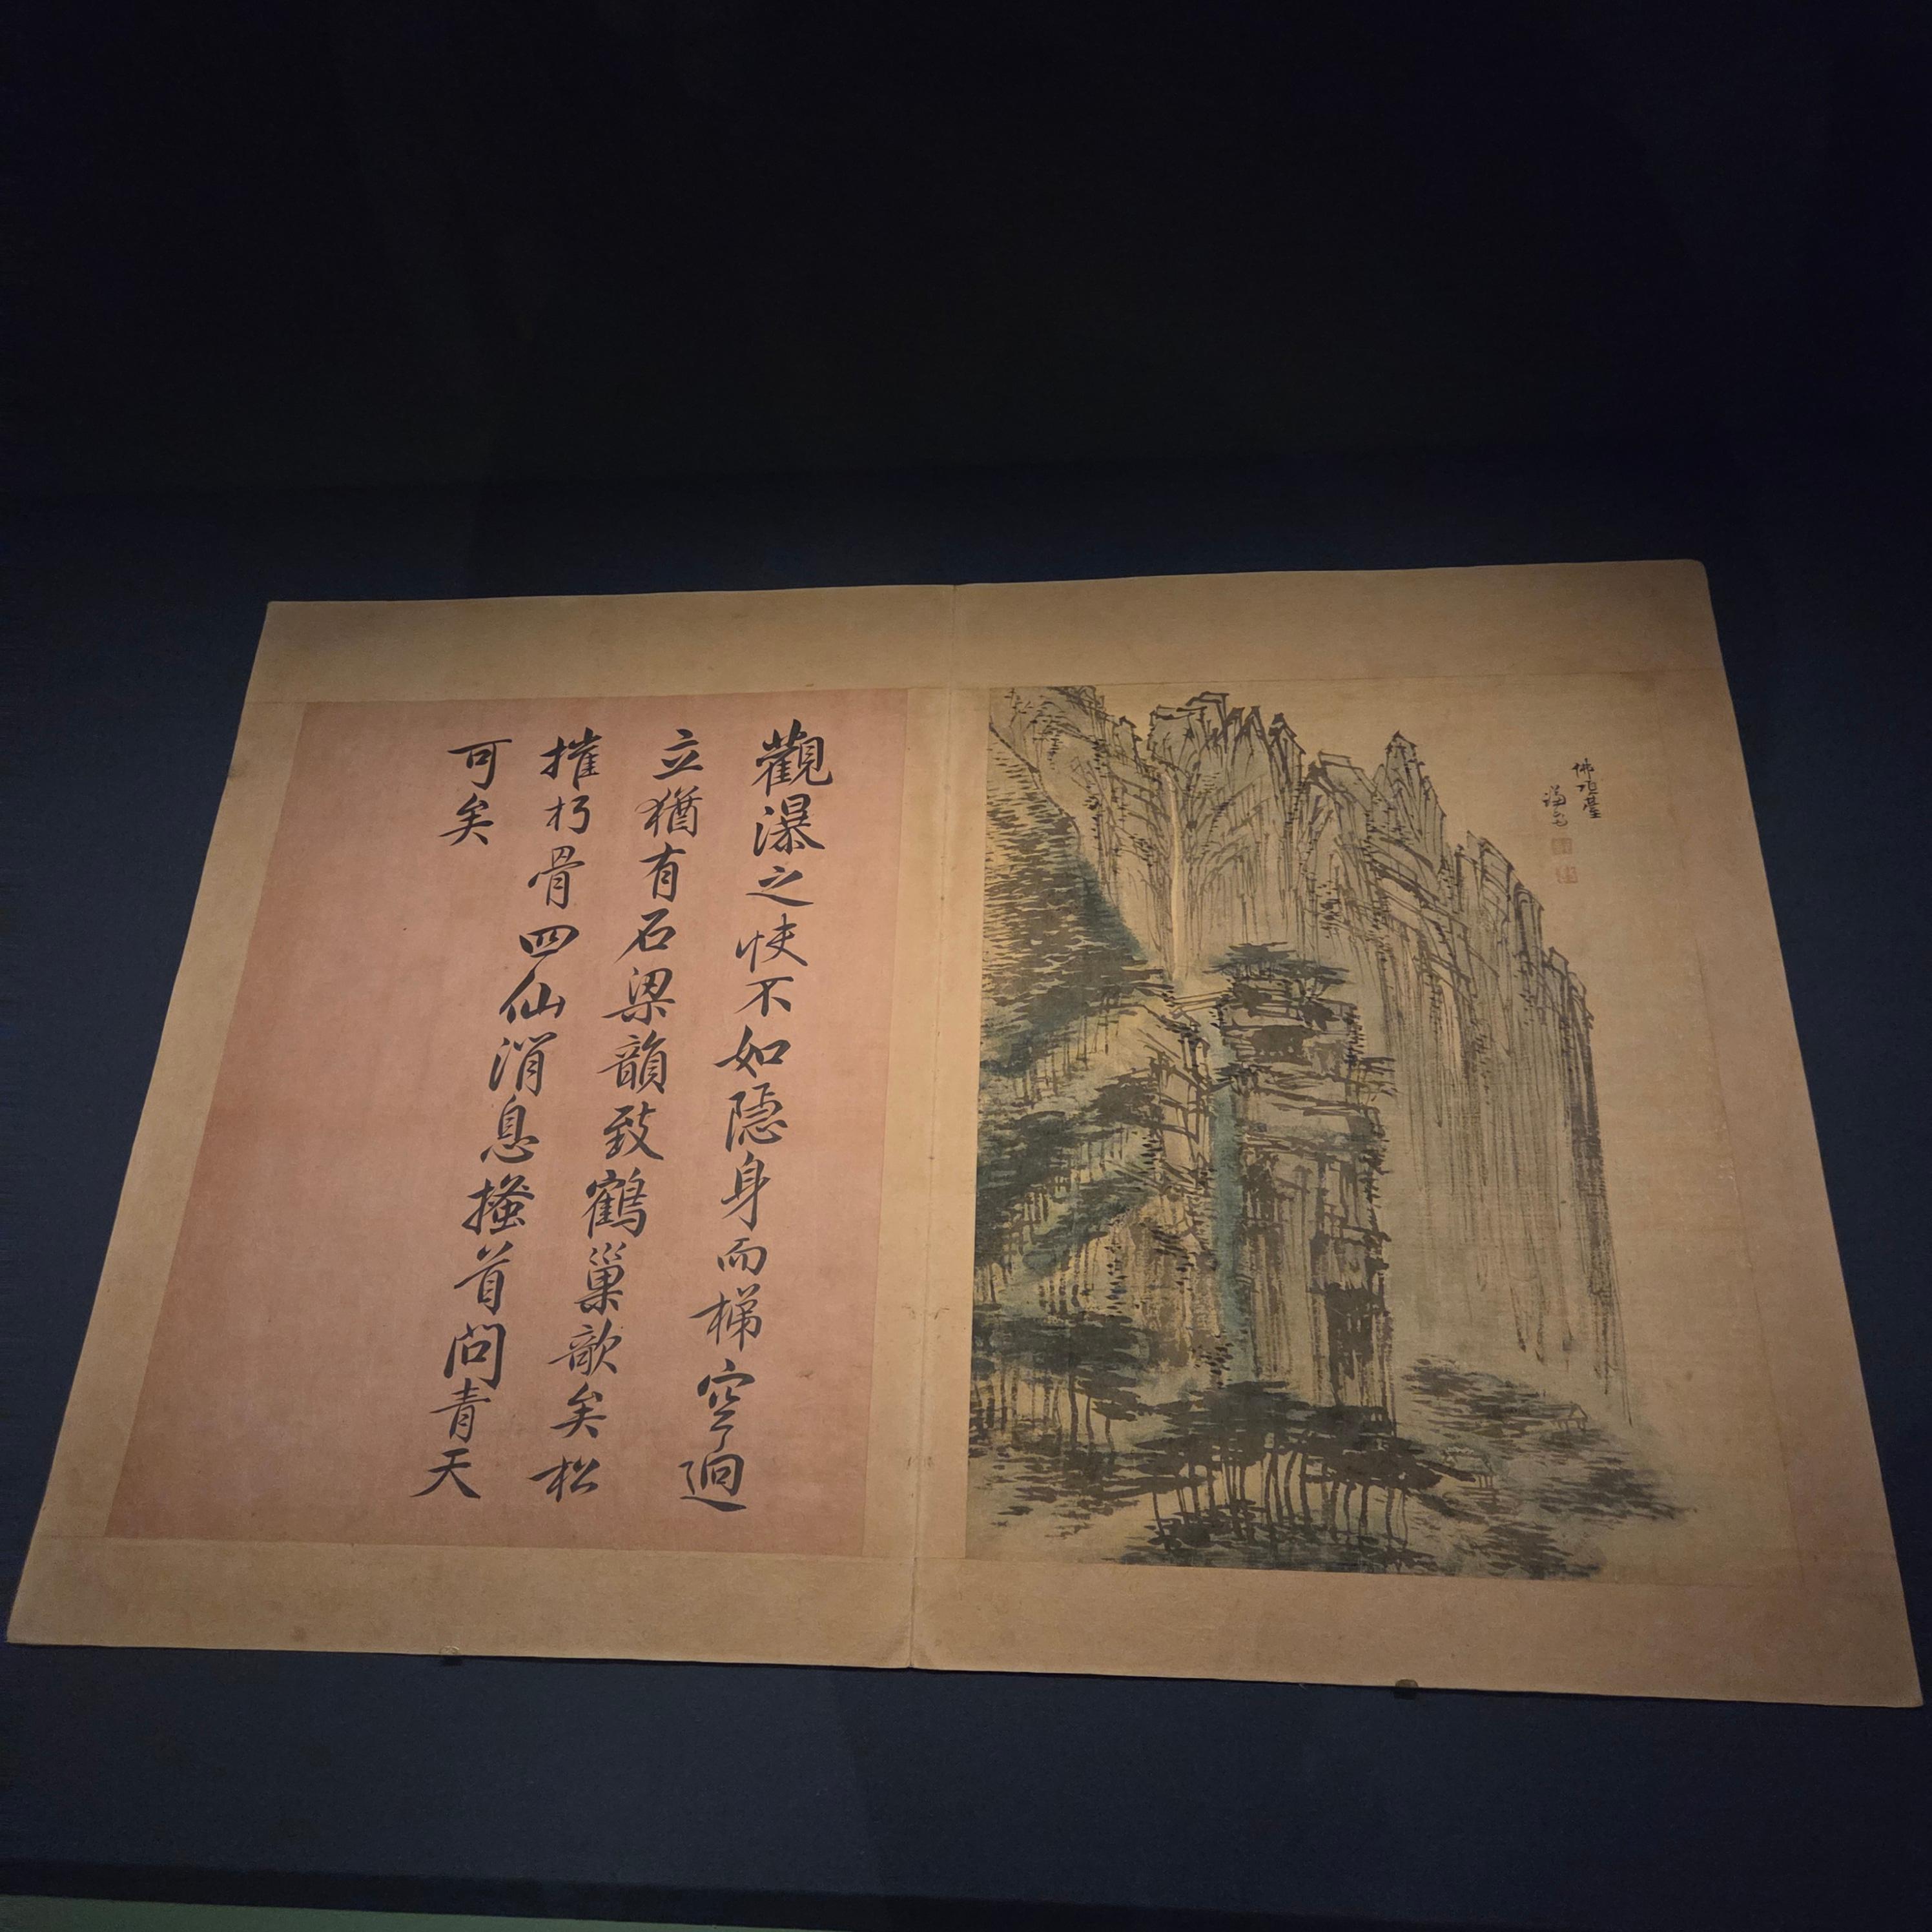 佛頂臺
謙齋
觀瀑之快不如隱身而梯空迥
立猶有石梁韻致鶴巢歆矣松
摧朽骨四仙消息搔首問青天
可矣